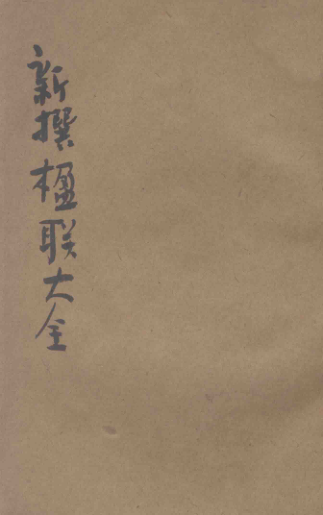 新撰楹联大全